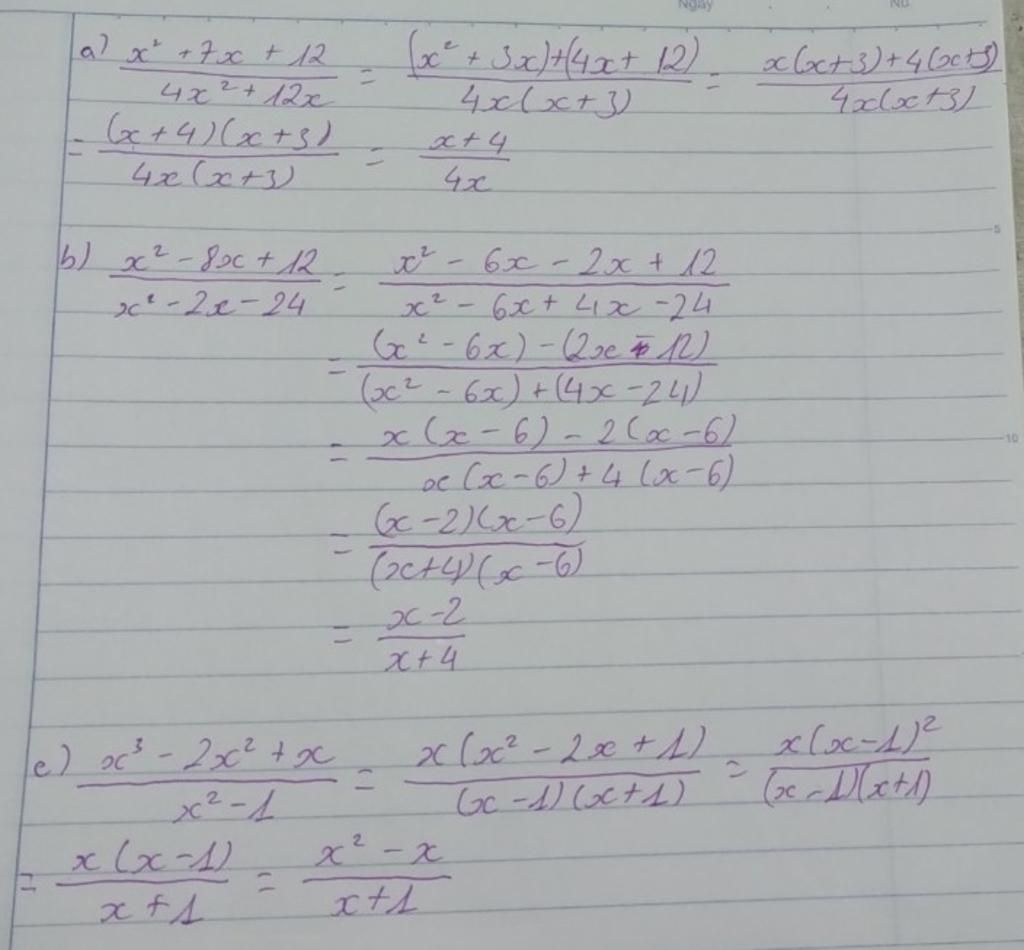 Ngày No
a) (x² + 7x + 12)/(4x² + 12x) = ((x² + 3x)+(4x + 12))/(4x(x+3)) = (x(x+3)+4(x+3))/(4x(x+3))
= ((x+4)(x+3))/(4x(x+3)) = (x+4)/(4x)
5
b) (x² - 8x + 12)/(x² - 2x - 24) = (x² - 6x - 2x + 12)/(x² - 6x + 4x - 24)
= ((x² - 6x) - (2x - 12))/((x² - 6x) + (4x - 24))
= (x(x-6) - 2(x-6))/(x(x-6) + 4(x-6))
10
= ((x-2)(x-6))/((x+4)(x-6))
= (x-2)/(x+4)
c) (x³ - 2x² + x)/(x² - 1) = (x(x² - 2x + 1))/((x-1)(x+1)) = (x(x-1)²)/((x-1)(x+1))
= (x(x-1))/(x+1) = (x² - x)/(x+1)